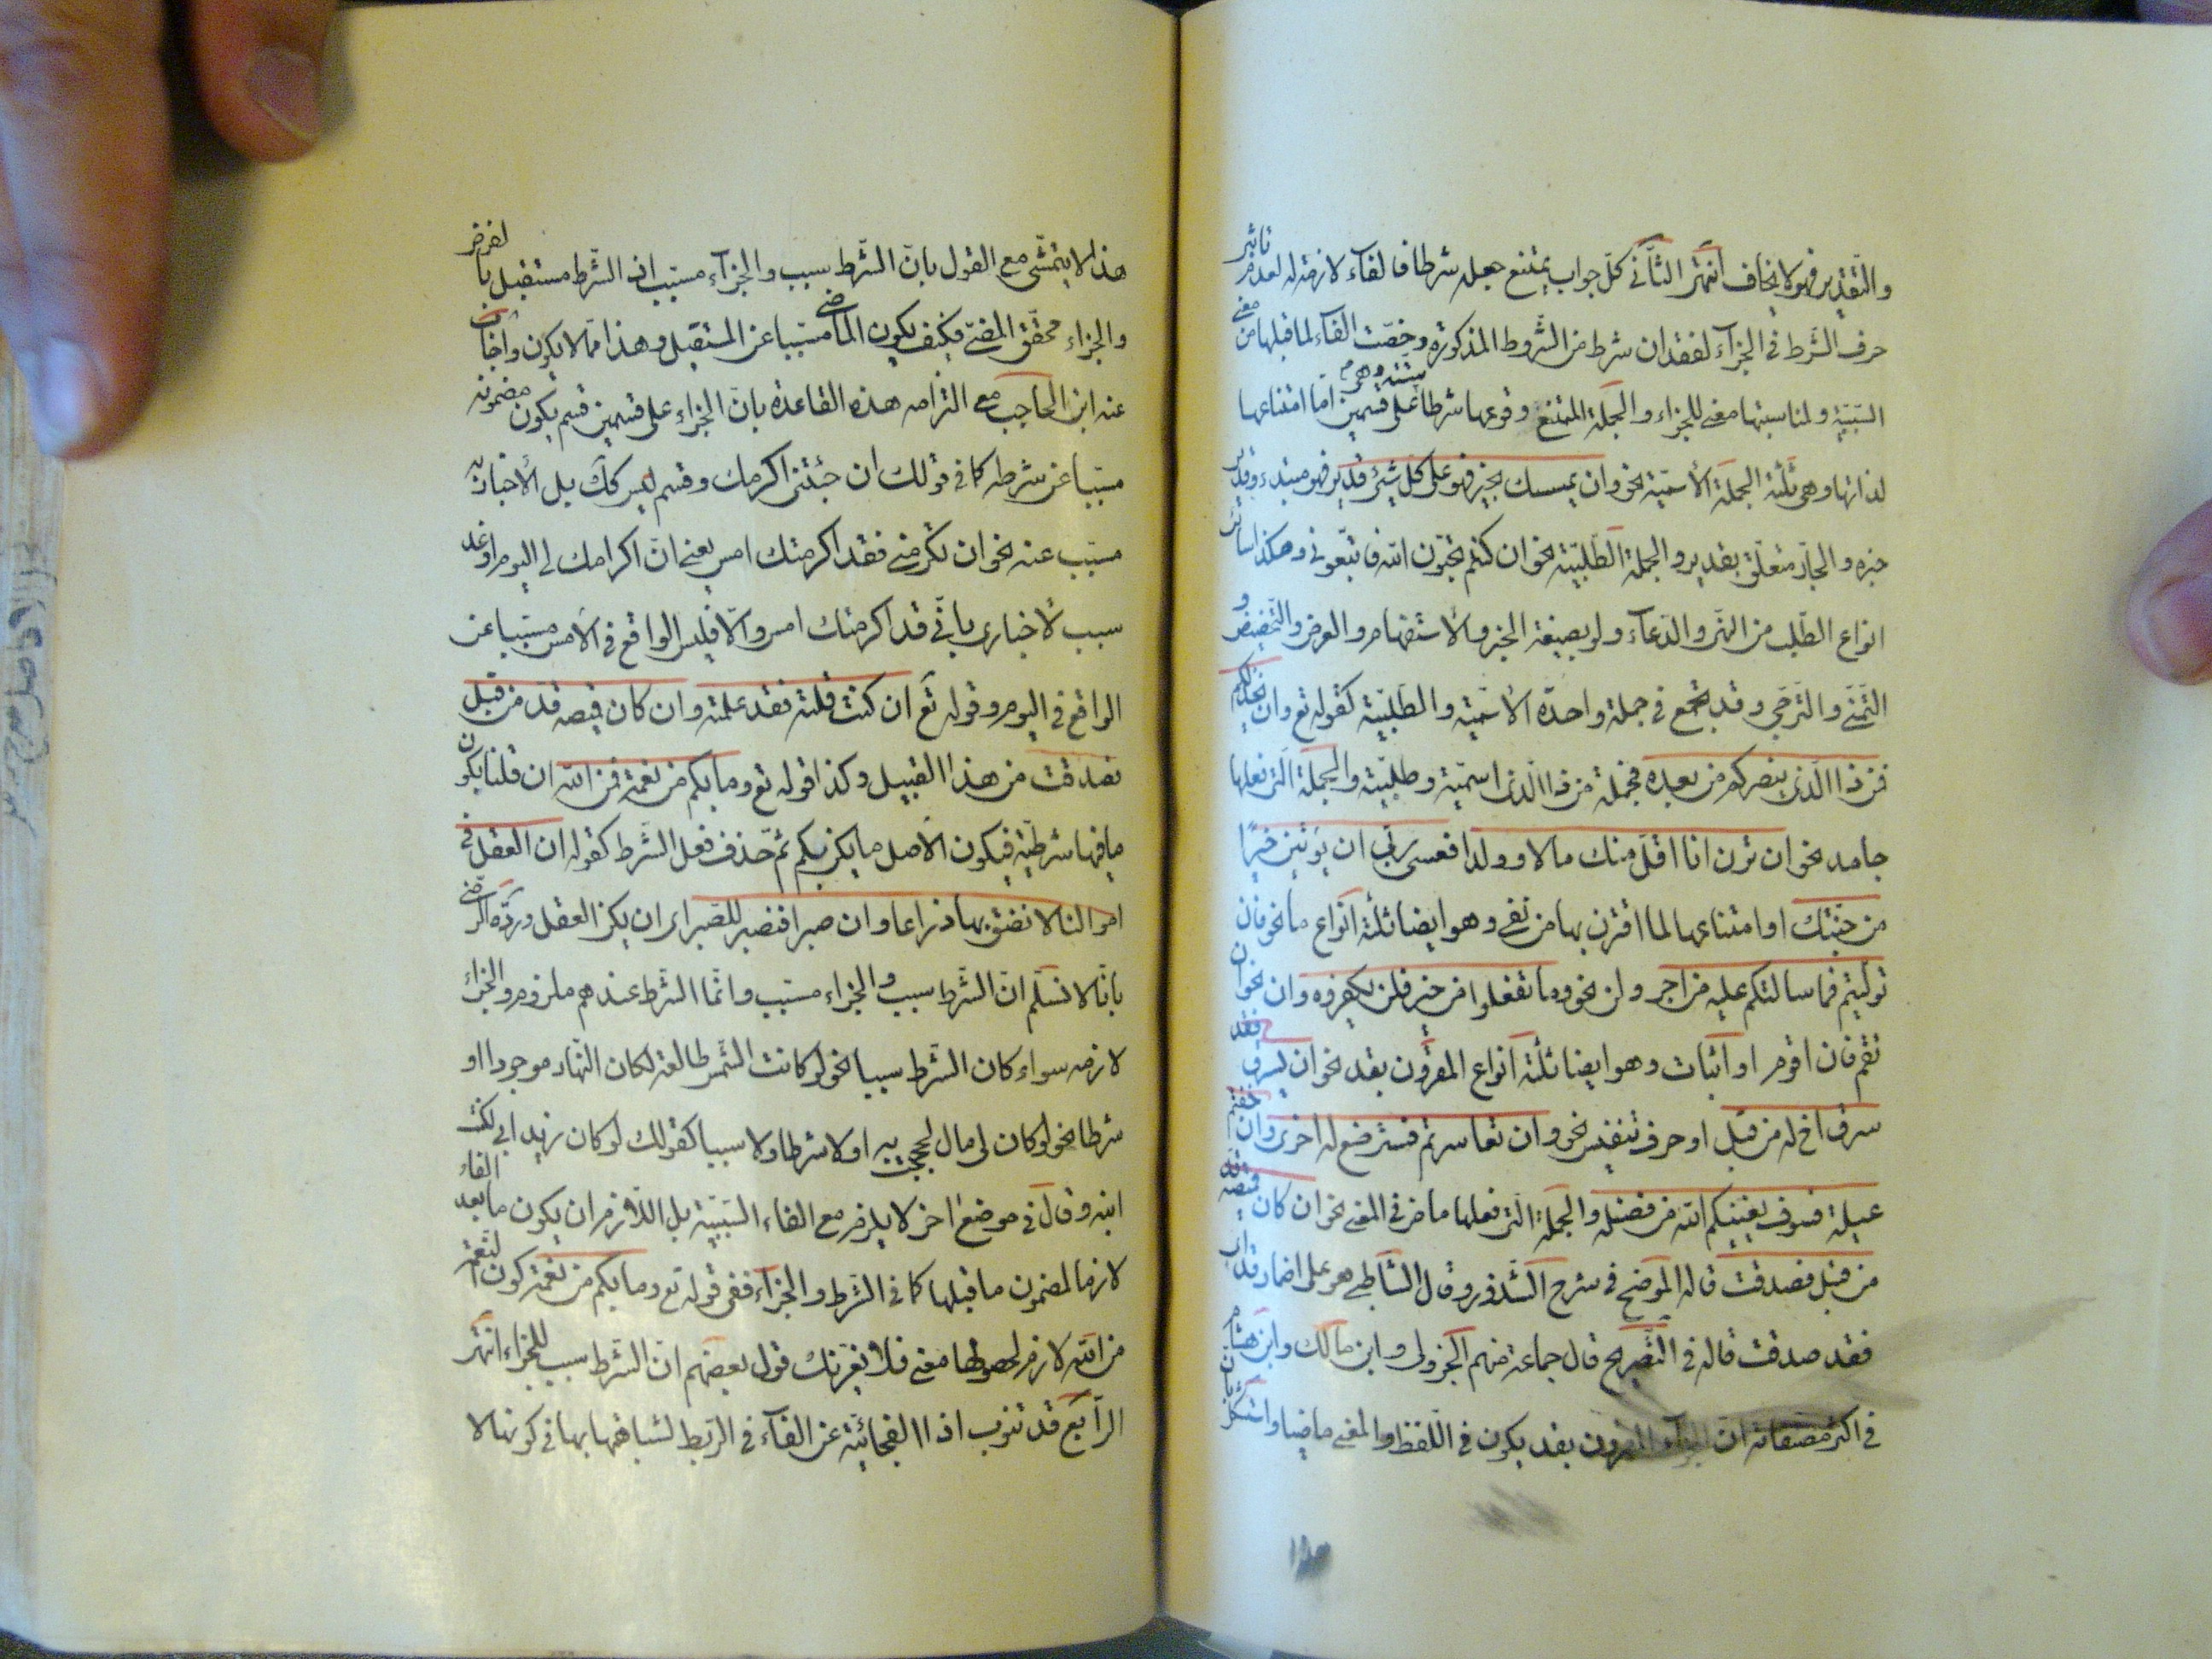 والتقدير فهو لا يخاف انتهى الثانى كل جواب يمتنع جعله شرطا فالفآء لازمة له لعدم تاثير
حرف الشرط فى الجزآء لفقدان شرط من الشروط المذكورة وخصت الفآء لما قبلها من معنى
السببية ولمناسبتها معنى للجزاء والجملة الممتنع وقوعها شرطا ستة وهى على قسمين اما امتناعها
لذاتها وهى ثلثة الجملة الأسمية نحو وان يمسسك بخير فهو على كل شئ قدير فهو مبتدء وقدير
خبره والجار متعلق بقدير والجملة الطلبية نحو ان كنتم تحبون الله فاتبعونى وهكذا سائر
انواع الطلب من النهى والدعآء ولو بصيغة الخبر والأستفهام والعرض والتحضيض و
التمنى والترجى وقد تجتمع فى جملة واحدة الأسمية والطلبية كقوله تع وان يخذلكم
فمن ذا الذى ينصركم من بعده فجملة من ذا الذى اسمية وطلبية والجملة التى فعلها
جامد نحو ان ترن انا اقل منك مالا وولدا فعسى ربى ان يؤتين خيرًا
من جنتك او امتناعها لما اقترن بها من نفى وهو ايضا ثلثة انواع ما نحو فان
توليتم فما سالتكم عليه من اجر ولن نحو وما تفعلوا من خير فلن يكفروه وان نحو ان
تقم فان اقوم او اثبات وهو ايضا ثلثة انواع المقرون بقد نحو ان يسرق فقد
سرق اخ له من قبل او حرف تنفيس نحو وان تعاسرتم فسترضع له اخرى وان خفتم
عيلة فسوف يغنيكم الله من فضله والجملة التى فعلها ماض فى المعنى نحو ان كان قميصه قد
من قبل فصدقت قاله الموضح فى شرح الشذور وقال الشاطبى هو على اضمار قد اى
فقد صدقت قاله فى التصريح قال جماعة منهم الجزولى وابن مالك وابن هشام
فى اكثر مصنفاته ان الجزآء المقرون بقد يكون فى اللفظ والمعنى ماضيا واستشكل بان
هذا لا يتمشى مع القول بان الشرط سبب والجزآء مسبب اذ الشرط مستقبل بالفرض
والجزاء محقق المضى فكيف يكون الماضى مسببا عن المستقبل وهذا مما لا يكون واجاب
عنه ابن الحاجب مع التزامه هذه القاعدة بان الجزاء على قسمين قسم يكون مضمونه
مسببا عن شرطه كما فى قولك ان جئتنى اكرمك وقسم ليس كك بل الأخبار به
مسبب عنه نحو ان تكرمنى فقد اكرمتك امس يعنى ان اكرامك لى اليوم او غد
سبب لأخبارى بانى قد اكرمتك امس والا فليس الواقع فى الامس مسببا عن
الواقع فى اليوم وقوله تع ان كنت قلته فقد علمته وان كان قميصه قد من قبل
فصدقت من هذا القبيل وكذا قوله تع وما بكم من نعمة فمن الله ان قلنا بكون
ما فيها شرطية فيكون الاصل ما يكن بكم ثم حذف فعل الشرط كقوله ان العقل فى
اموالنا لا نضق بها ذراعا وان صبرا فنصبر للصبر اى ان يكن العقل ورده الرضى
بانا لا نسلم ان الشرط سبب والجزاء مسبب وانما الشرط عندهم ملزوم والجزاء
لازمه سواء كان الشرط سببا نحو لو كانت الشمس طالعة لكان النهار موجودا او
شرطا نحو لو كان لى مال لحججت به او لا شرطا ولا سببا كقولك لو كان زيد ابى لكنت
ابنه وقال فى موضع اخر لا يلزم مع الفاء السببية بل اللازم ان يكون ما بعد الفاء
لازما لمضمون ما قبلها كما فى الشرط والجزاء ففى قوله تع وما بكم من نعمة كون النعمة
من الله لازم لحصولها معنى فلا يغرنك قول بعضهم ان الشرط سبب للجزاء انتهى
الرابع قد تنوب اذا الفجائية عن الفآء فى الربط لشباهتها بها فى كونها لا